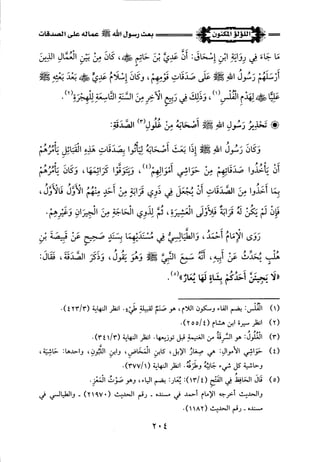 اللؤلؤ المكنون
بعث رسول الله ﷺ عماله على الصدقات
جاءَ في رواية ابنِ إسحاقَ: أن عَدِيَّ بنَ حاتمٍ ﷺ، كانَ مِنْ بَيْنِ العُمَّالِ الذين
أرسلَهُم رسولُ الله ﷺ على صدقات قومهم، وكان إسلامُ عَدِيٍّ ﷺ بعدَ بَعْثِ
عليٍّ ﷺ لِهَدْمِ الفُلْسِ(١)، وذلك في ربيع الآخرِ مِنَ السَّنة التاسعةِ لِلهِجْرَةِ(٢).
◉ تحذير رسول الله ﷺ أصحابه من غلول(٣) الصدقة:
وكانَ رسولُ اللهِ ﷺ إذا بَعَثَ أصحابَهُ لِيَأْتُوا بِصَدقاتِ هذه القَبَائِلِ يَأْمُرُهُمْ
أن يأخُذُوا الصدقاتِ مِنْ حَواشِي أموالِهم(٤)، ويَتَوَقَّوْا كَرَائِمَهَا، وكان يأمُرُهُمْ
بما أخذوا من الصدقات أن تُجعل في ذوي قرابةِ مَنْ أُخِذَ مِنْهُمْ الأَوَّلُ فالأوَّلُ،
فإن لم يكن له قرابة فلأولي العشيرة، ثم لذوي الحاجةِ من الجيرانِ وغيرهم.
روى الإمام أحمد، والطيالسيُّ في مُسْنَدَيْهِمَا بسند صحيح عن قَبِيصَةَ بنِ
هُلْبٍ يُحَدِّثُ عن أبيه، أنه سمع النبيَّ ﷺ وهو يقول، وذكر الصدقة، فقال:
«لَا يَجِيئَنَّ أَحَدُكُمْ بِشَاةٍ لَهَا يُعَارٌ»(٥).
(١) الفُلس: بضم الفاء وسكون اللام، هو صنم لقبيلة طيء. انظر النهاية (٤٢٣/٣).
(٢) انظر سيرة ابن هشام (٢٥٥/٤)
(٣) الغُلول: هو السرقة من الغنيمة قبل قسمتها. انظر النهاية (٣٤١/٣).
(٤) حواشي الأموال: هي صغار الإبل، كابن المخاض، وابن اللبون، واحدها: حاشية،
وحاشية كل شيء جانبه وطرفه. انظر النهاية (٣٧٧/١).
(٥) قال الحافظ في الفتح (١٣/٤): يُعار: بضم الياء، وهو صوت المعز.
والحديث أخرجه الإمام أحمد في مسنده - رقم الحديث (٢١٩٧٠) - والطيالسي في
مسنده - رقم الحديث (١١٨٢).
٢٠٤